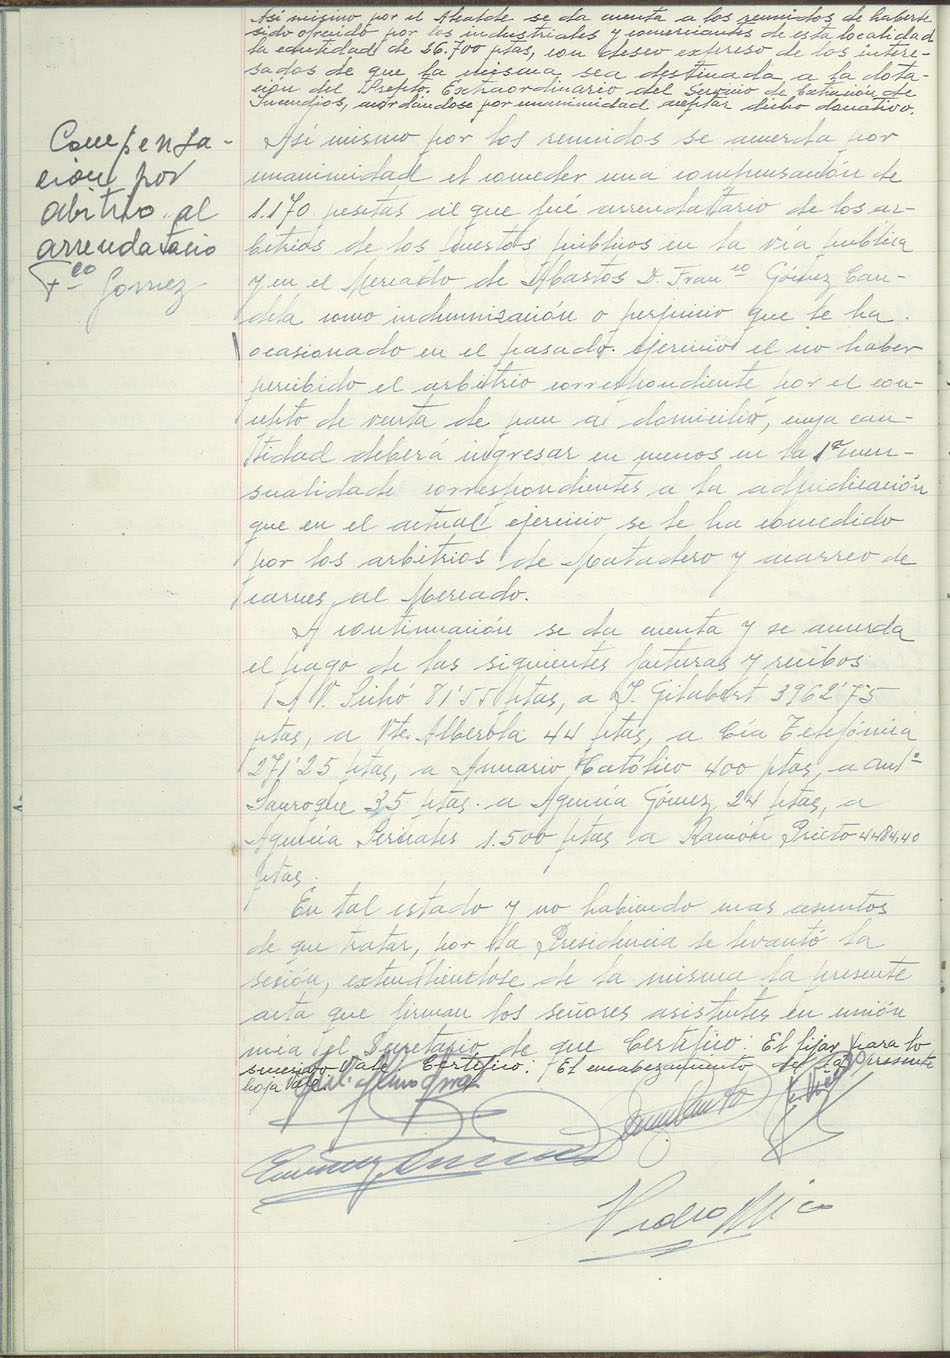 Así mismo por el Alcalde se da cuenta a los reunidos de haberse
sido ofrecido por los industriales y comerciantes de esta localidad
la cantidad de 26.700 ptas, con deseo expreso de los intere-
sados de que la misma sea destinada a la dota-
ción del Prepto. Extraordinario del Servicio de Extinción de
Incendios, acordándose por unanimidad aceptar dicho donativo.
Compensa-
ción por
abitrio al
arrendatario
Fco Gomez
Así mismo por los reunidos se acuerda por
unanimidad el conceder una compensación de
1.170 pesetas al que fué arrendatario de los ar-
bitrios de los puestos públicos en la vía publica
y en el Mercado de Abastos D. Franco Gómez Can-
dela como indemnización o perjuicio que le ha
ocasionado en el pasado ejercicio el no haber
percibido el arbitrio correspondiente por el con-
cepto de venta de pan a domicilio, cuya can-
tidad deberá ingresar en menos en la 1ª men-
sualidade correspondientes a la adjudicación
que en el actual ejercicio se le ha concedido
por los arbitrios de Matadero y acarreo de
carnes al Mercado.
A continuación se da cuenta y se acuerda
el pago de las siguientes facturas y recibos
A V. Sichó 81'55 ptas, a J. Gilabert 3962'75
ptas, a Vte. Alberola 44 ptas, a Cía Telefónica
271'25 ptas, a Anuario Católico 400 ptas, a Antº
35 ptas. a Agencia Gómez 24 ptas, a
Agencia 1.500 ptas a Ramón Prieto 4484,40
ptas.
En tal estado y no habiendo mas asuntos
de que tratar, por la Presidencia se levantó la
sesión, extendiendose de la misma la presente
acta que firman los señores asistentes en unión
mía el Secretario de que Certifico. El fijar para lo
sucesivo Vale. Certifico. El encabezamiento de la presente
hoja Vale.
Pedro Mico